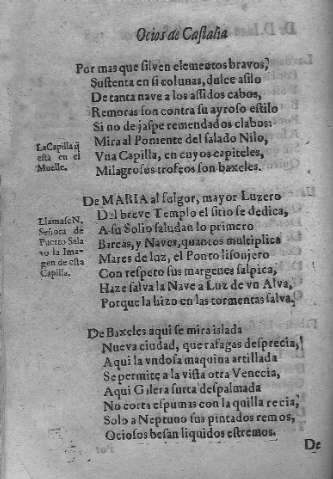 Ocios de Castalia
Por mas que silven elementos bravos,
Sustenta en si colunas, dulce asilo
De tanta nave a los assidos cabos,
Remoras son contra su ayroso estilo
Si no de jaspe remendados clabos:
Mira al Poniente del salado Nilo,
Vna Capilla, en cuyos capiteles,
Milagrosos trofeos son baxeles.
La Capilla q̃
està en el
Muelle.
De MARIA al fulgor, mayor Luzero
Del breve Templo el sitio se dedica,
A su Solio saludan lo primero
Barcas, y Naves, quantos multiplica
Mares de luz, el Ponto lisonjero
Con respeto sus margenes salpica,
Haze salva la Nave a Luz de vn Alva,
Porque la hizo en las tormentas salva.
Llamase N.
Señora de
Puerto Sal
vo la Ima-
gen de esta
Capilla.
De Baxeles aqui se mira islada
Nueva ciudad, que rafagas desprecia,
Aqui la vndosa maquina artillada
Se permite a la vista otra Venecia,
Aqui Galera surta despalmada
No corta espumas con la quilla recia,
Solo a Neptuno sus pintados remos,
Ociosos besan liquidos estremos.
De